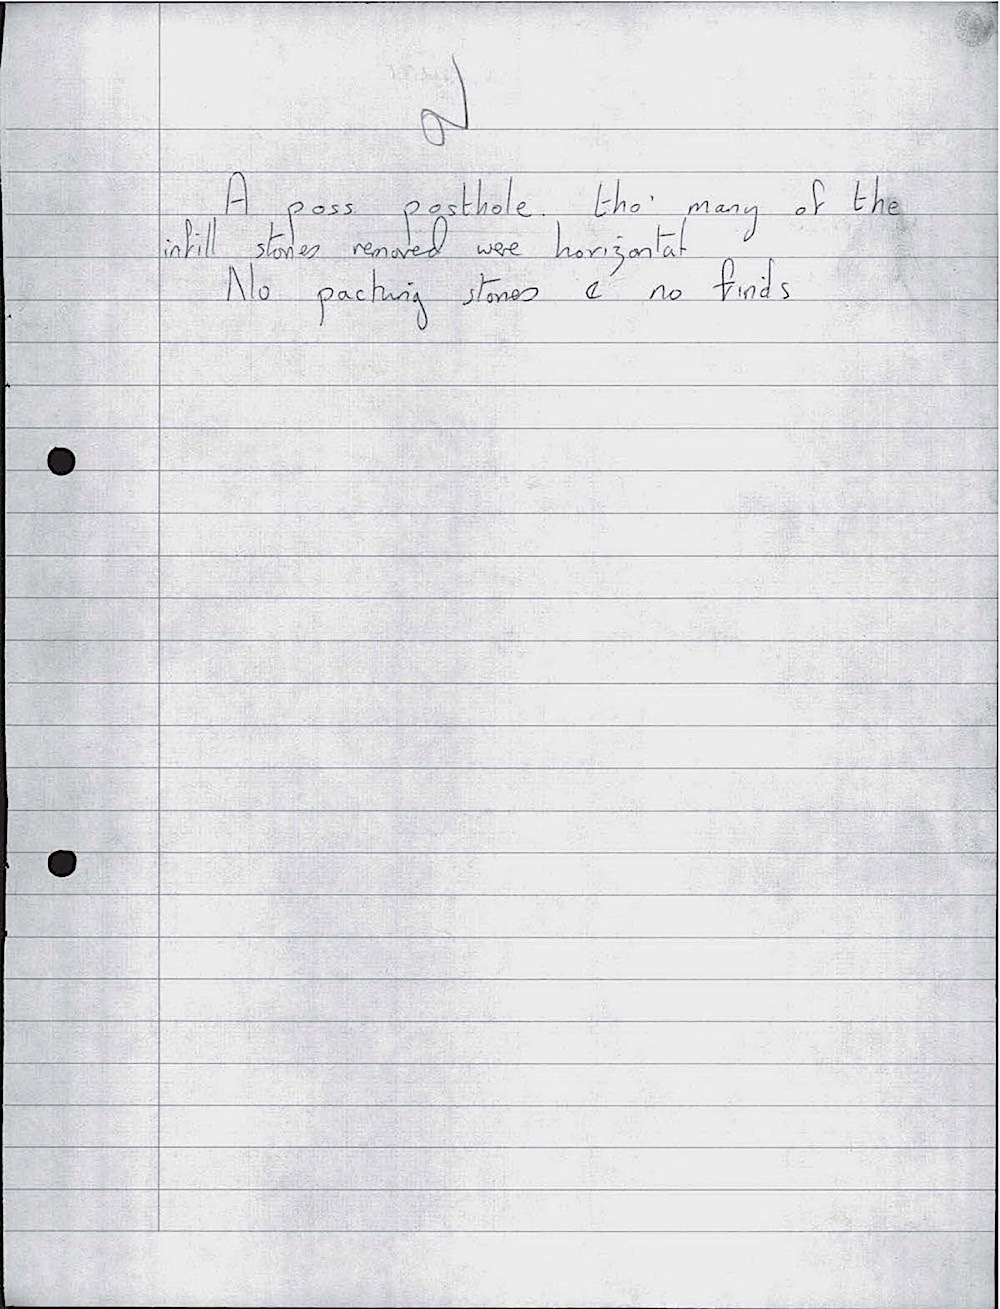 2
A poss posthole. tho' many of the
infill stones removed were horizontal
No packing stones & no finds